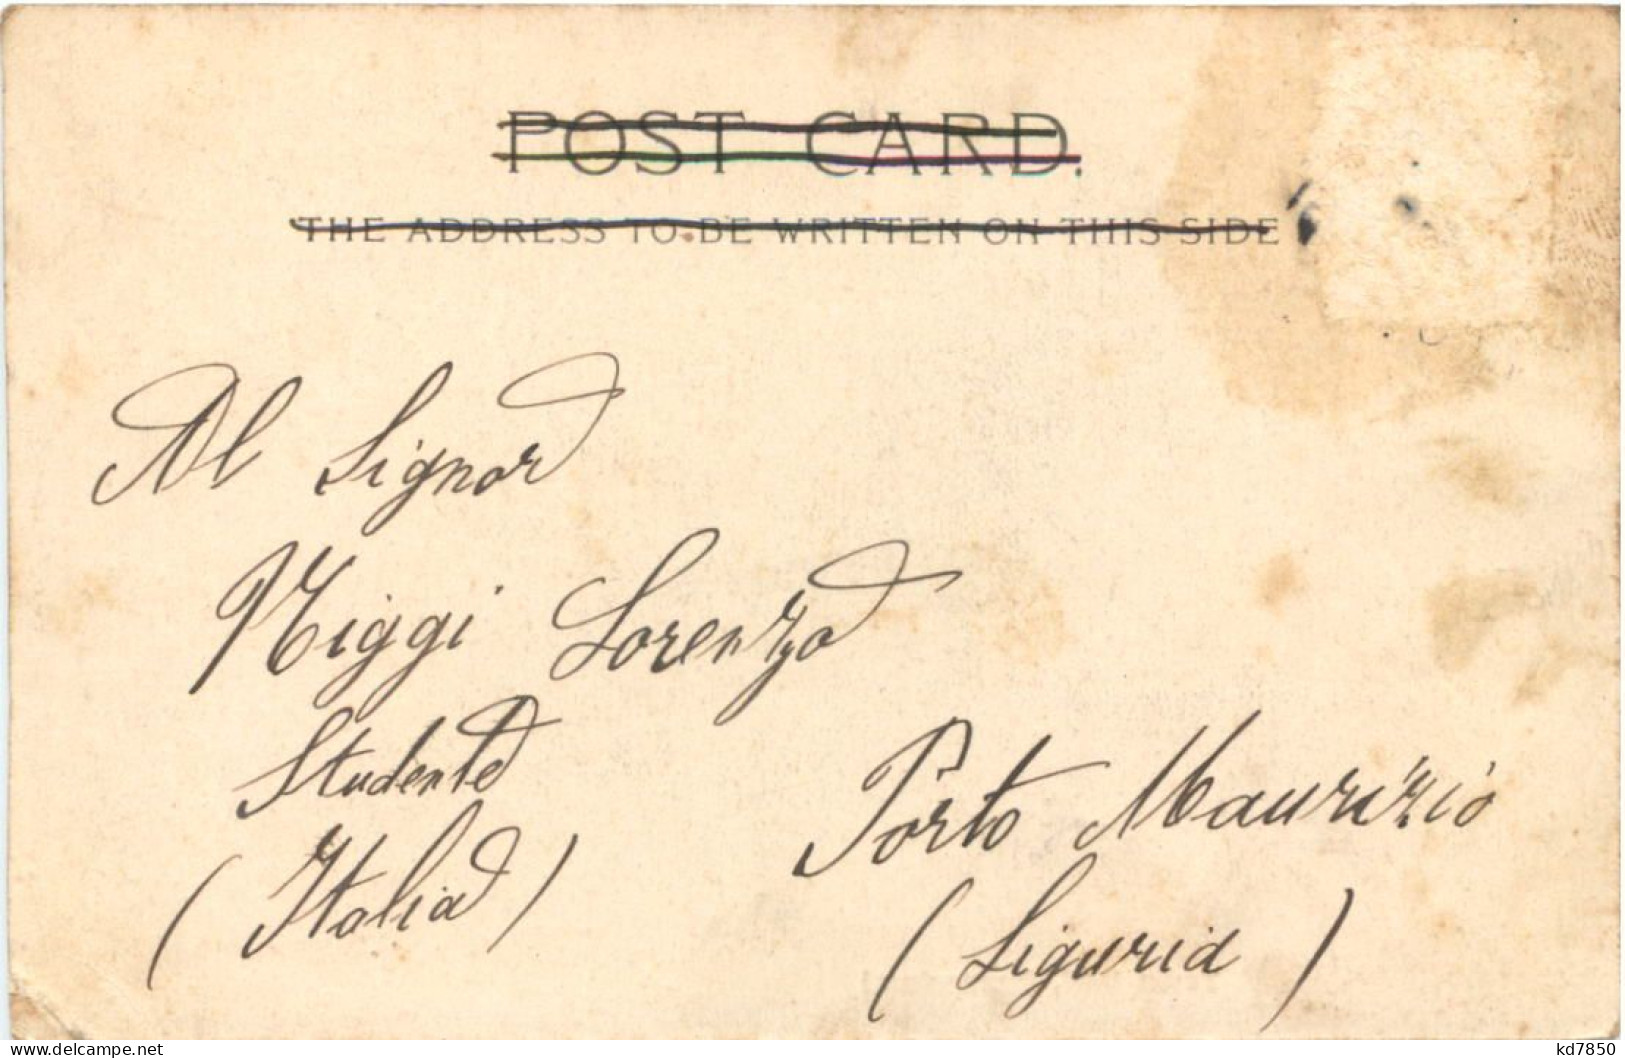 POST CARD.
THE ADDRESS TO BE WRITTEN ON THIS SIDE
Al Signor
Niggi Lorenzo
Studente
(Italia)
Porto Maurizio
(Liguria)
www.delcampe.net
kd7850